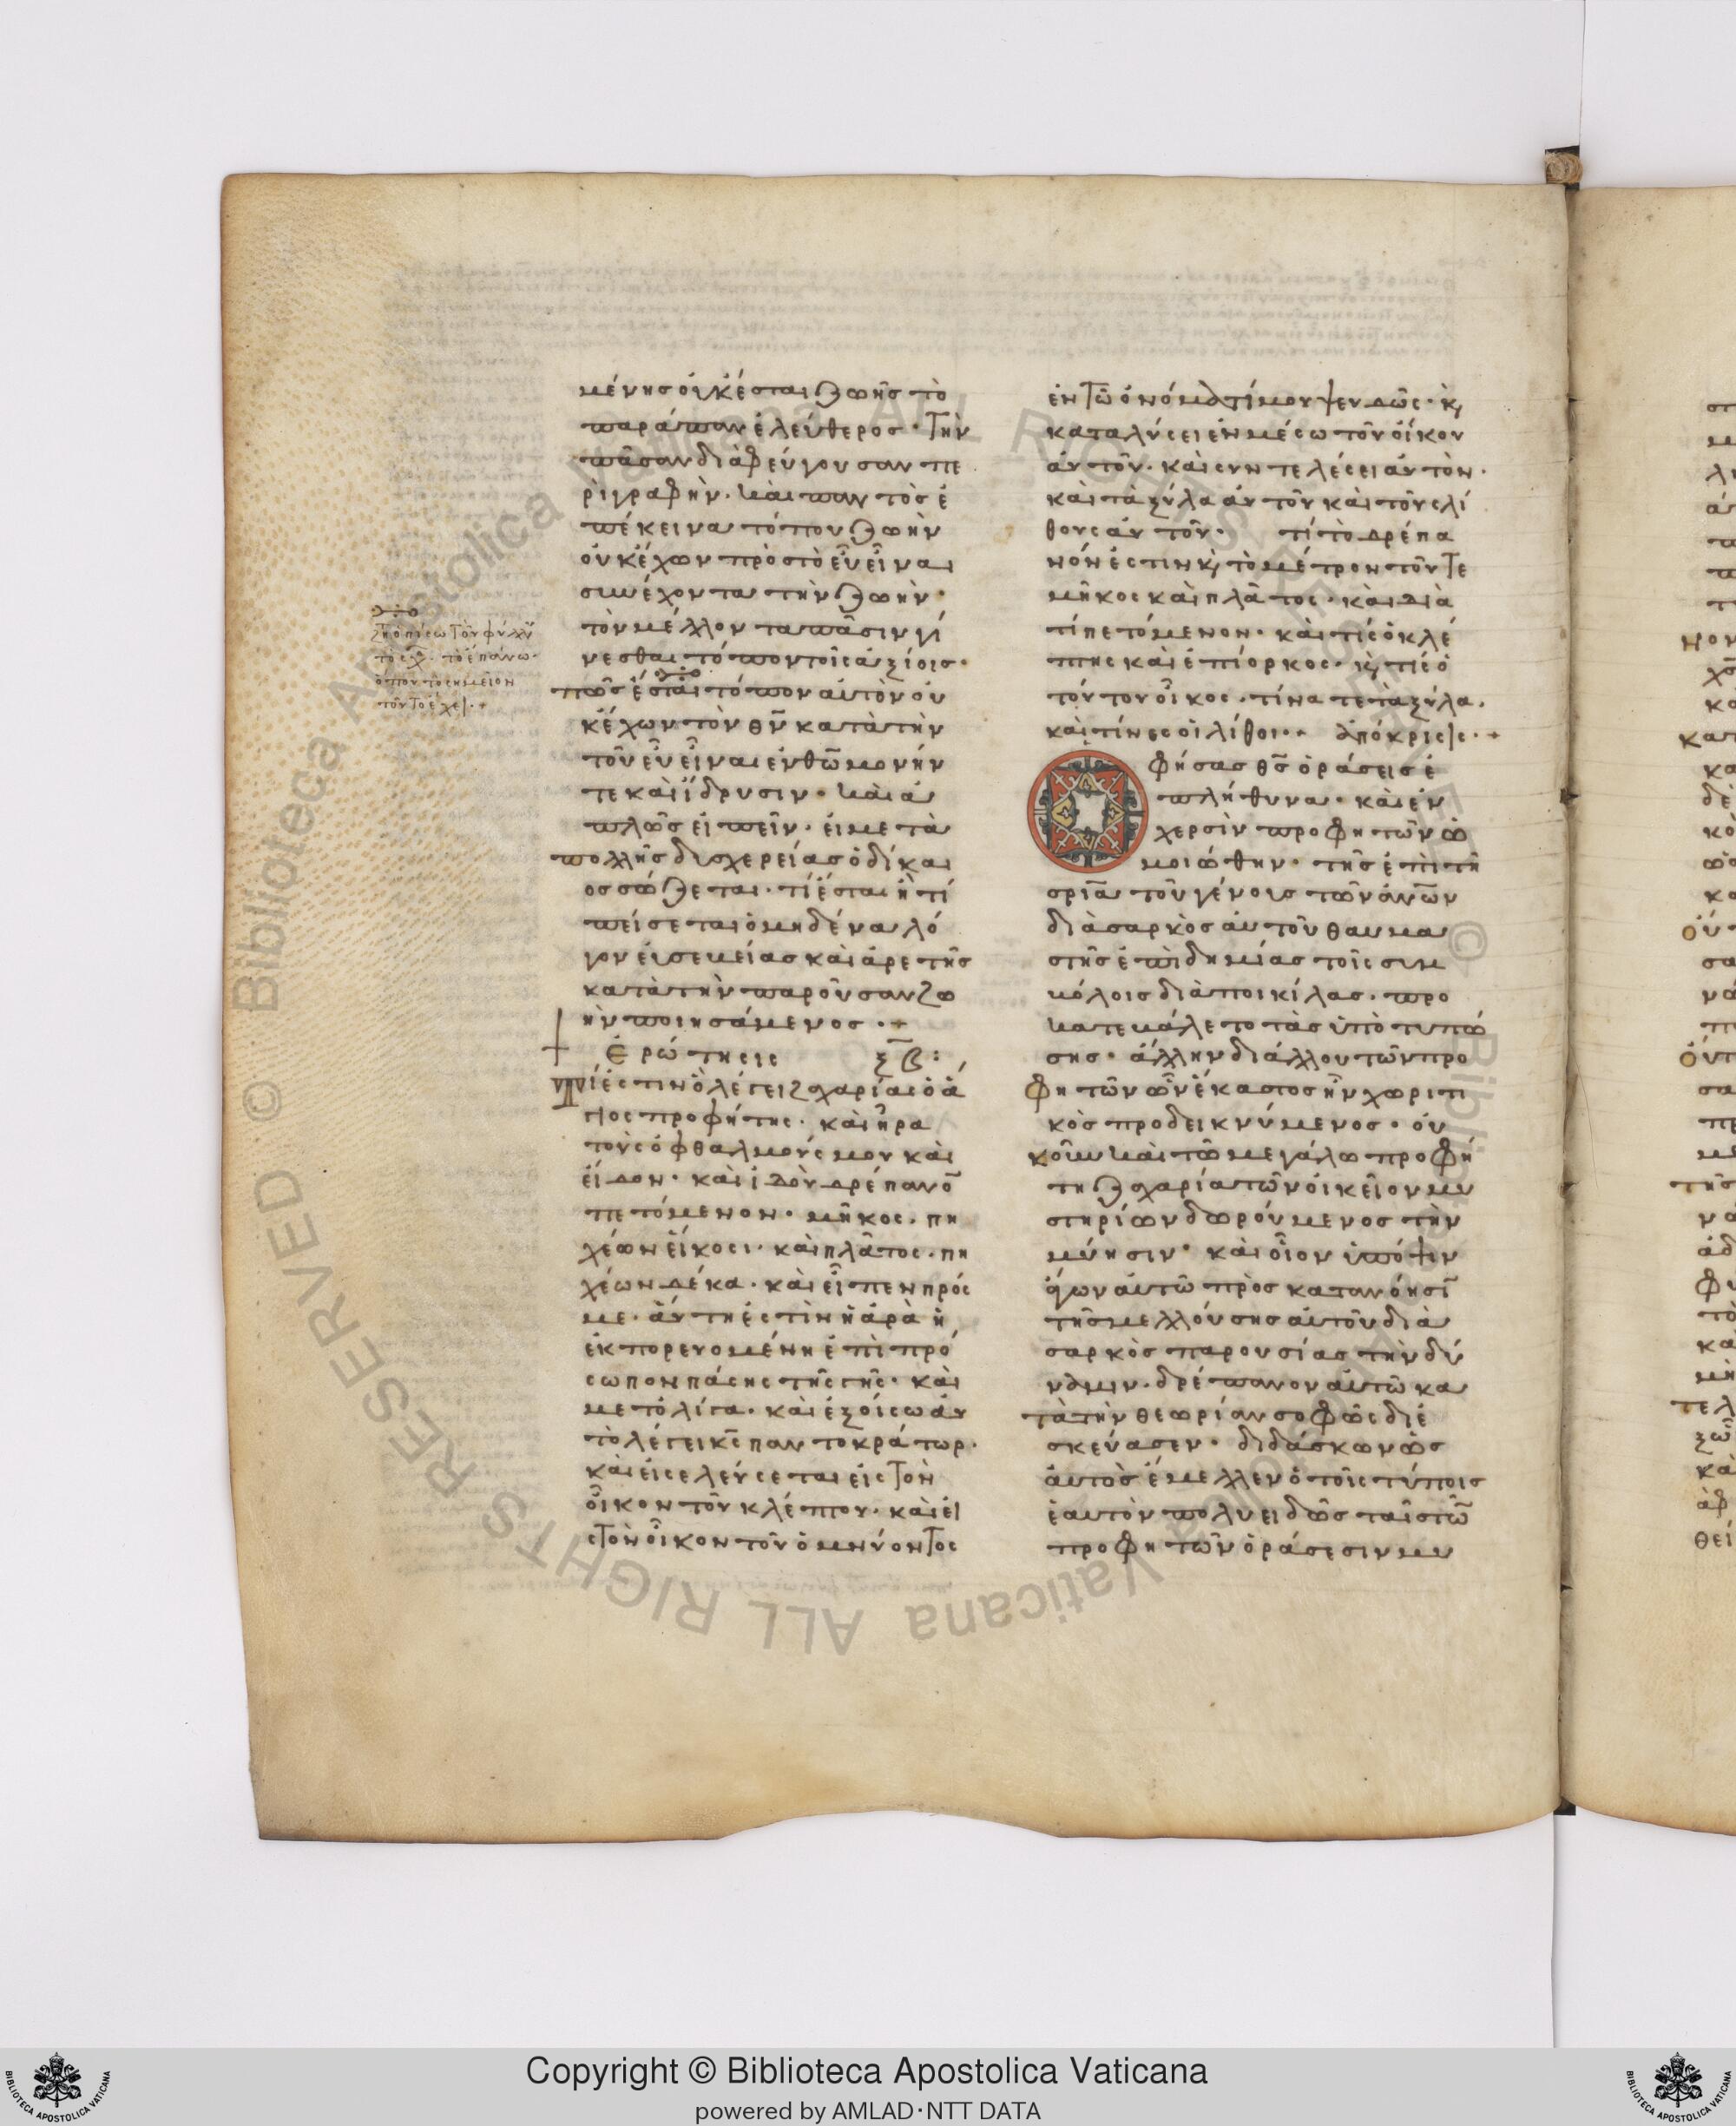 μένης οὐκ ἔσται ζωῆς τὸ
παράπαν ἐλεύθερος· τὴν
πᾶσαν διαφεύγουσαν πε
ριγραφὴν· καὶ παντὸς ἐ
πέκεινα τόπου ζωὴν
οὐκ ἔχων πρὸς τὸ εὖ εἶναι
συνέχοντα τὴν ζωὴν·
τὸν μέλλοντα πᾶσιν γί
νεσθαι τόπον τοῖς ἀξίοις·
πῶς ἔσται τόπον αὐτὸν οὐ
κ ἔχων τὸν θν κατὰ τὴν
τοῦ εὖ εἶναι ἐν θω μονήν
τε καὶ ἵδρυσιν· καὶ ἁ
πλῶς εἰπεῖν· εἰ μετὰ
πολλῆς δυσχερείας ὁ δίκαι
ος σώζεται· τί ἔσται ἢ τί
πείσεται ὁ μηδένα λό
γον εὐσεβείας καὶ ἀρετῆς
κατὰ τὴν παροῦσαν ζω
ὴν ποιησάμενος·+
ἐρώτησις ξβ:
Τί ἐστιν ὃ λέγει ζαχαρίας ὁ ἅ
γιος προφήτης· καὶ ἦρα
τοὺς ὀφθαλμούς μου καὶ
εἶδον· καὶ ἰδοὺ δρέπανο
πετόμενον· μῆκος· πη
χέων εἴκοσι· καὶ πλᾶτος· πη
χέων δέκα· καὶ εἶπεν πρός
με· αὕτη ἐστὶν ἡ ἀρὰ ἡ
ἐκπορευομένη ἐπὶ πρό
σωπον πάσης τῆς γῆς· καὶ
μετ ὀλίγα· καὶ ἐξοίσω αὐ
τὸ λέγει κς παντοκράτωρ·
καὶ εἰσελεύσεται εἰς τὸν
οἶκον τοῦ κλέπτου· καὶ εἰ
ς τὸν οἶκον τοῦ ὀμνύοντος
ἐν τῶ ὀνόματί μου ψευδῶς· κ
καταλύσει ἐν μέσω τοῦ οἴκου
αὐτοῦ· καὶ συντελέσει αὐτὸν·
καὶ τὰ ξύλα αὐτοῦ καὶ τοὺς λί
θους αὐτοῦ· τί τὸ δρέπα
νόν ἐστιν κ τὸ μέτρον τοῦτε
μῆκος καὶ πλᾶτος· καὶ διὰ
τί πετόμενον· καὶ τίς ὁ κλέ
πτης καὶ ἐπίορκος· κ τίς ὁ
τούτου οἶκος· τίνα τε τὰ ξύλα·
καὶ τίνες οἱ λίθοι·+ ἀπόκρισις·+
Ο φήσας θς ὁράσεις ἐ
πλήθυνα· καὶ ἐν
χερσὶν προφητῶν ὡ
μοιώθην· τῆς ἐπὶ τῆ
σρία τοῦ γένους τῶν ανων
διὰ σαρκὸς αὐτοῦ θαυμα
στῆς ἐπιδημίας τοῖς συμ
βόλοις διαποικίλας· προ
κατεβάλετο τὰς ὑποτυπώ
σης· ἄλλην δι ἄλλου τῶν προ
φητῶν ὧν ἕκαστος ἦν χωριτι
κὸς προδεικνύμενος· οὐ
κοῦν καὶ τῶ μεγάλω προφή
τη ζαχαρία τῶν οἰκεῖον μυ
στηρίων δωρούμενος τὴν
μύησιν· καὶ οἷον ὑπ ὄψιν
ἄγων αὐτῶ πρὸς κατανόησι
τῆς μελλούσης αὐτοῦ διὰ
σαρκὸς παρουσίας τὴν δύ
ναμιν· δρέπανον αὐτῶ κα
τὰ τὴν θεωρίαν σοφῶς διε
σκεύασεν· διδάσκων ὡς
αὐτὸς ἔμελλεν ὁ τοῖς τύποις
ἑαυτὸν πολυειδῶς ταῖς τῶ
προφητῶν ὁράσεσιν μυ